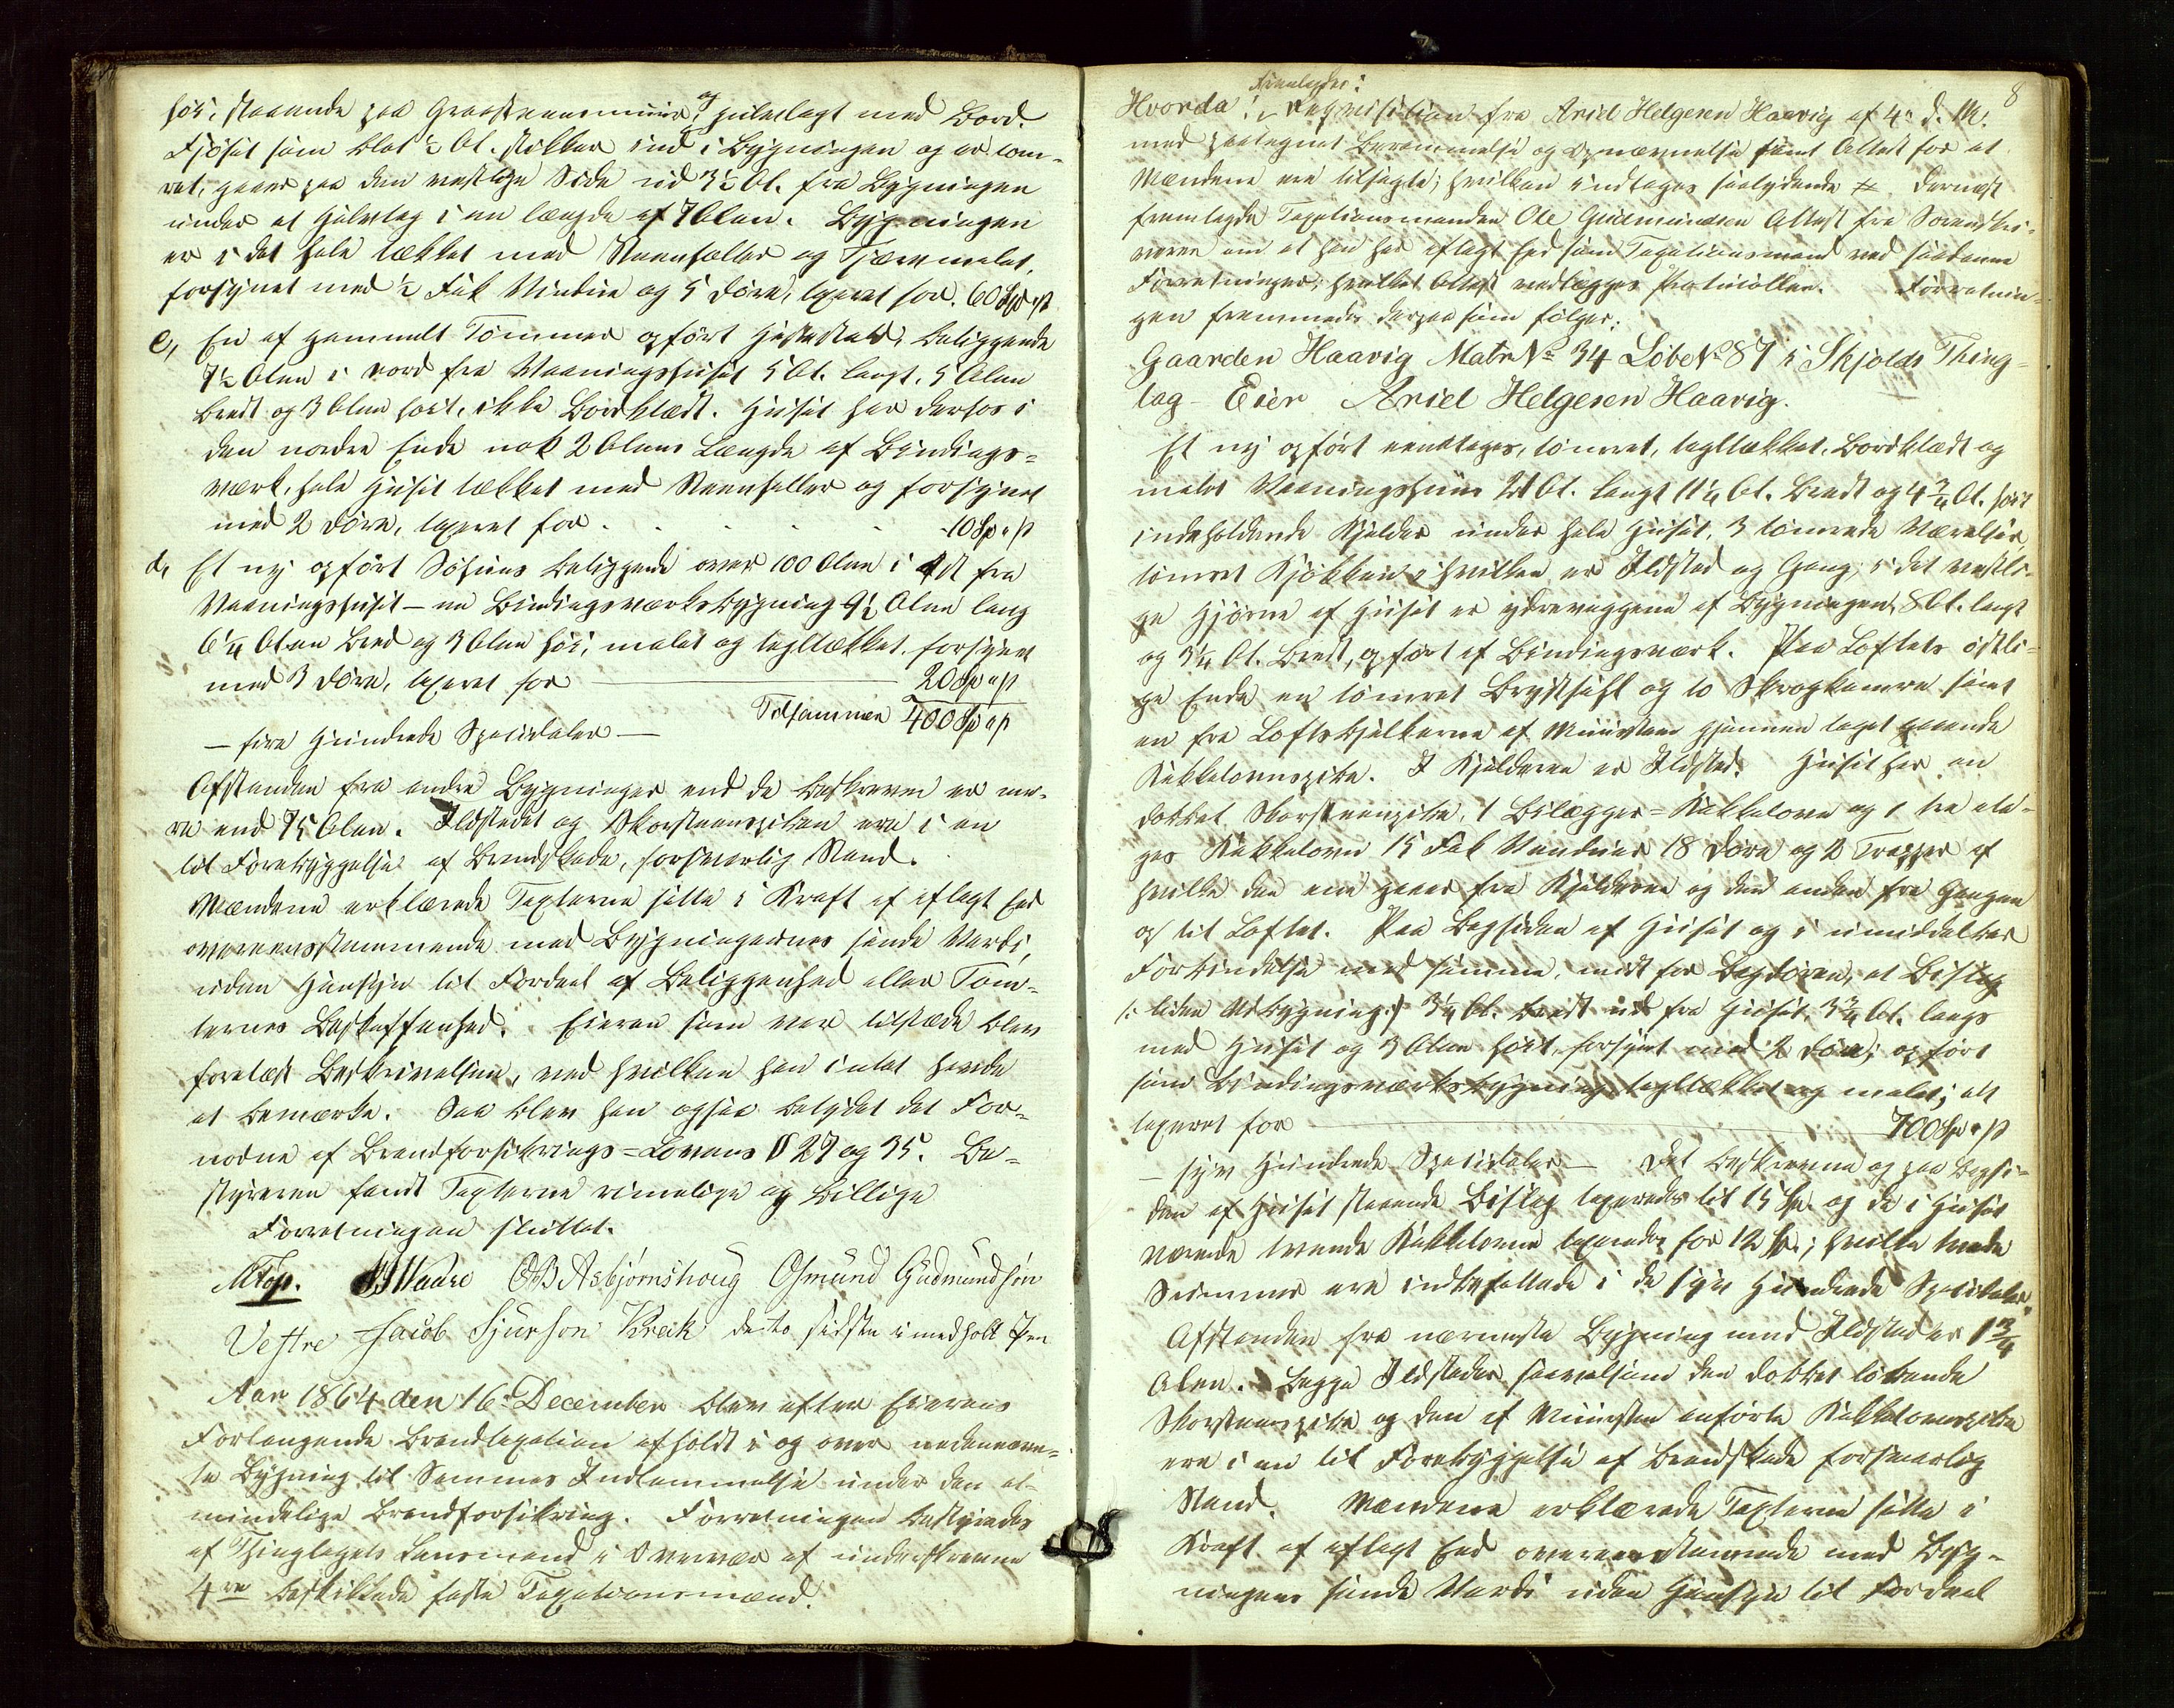 høi, staaende paa Graasteensmuur, og gulvlagt med Bord.
Fjøset som blot ½ Al. stikker ind i Bygningen og er tøm-
ret, gaaer paa den vestlige Side ud 3½ Al. fra Bygningen
under et Halvtag i en Længde af 7 Alen. Bygningen
er i det hele tækket med Steenheller og Tjæremalet,
forsynet med ½ Fak Vindue og 5 Døre, taxeret for. 60 Spd " ß
c, En af gammelt Tømmer opført Hestestald, beliggende
7½ Alen i nord fra Vaaningshuset 5 Al. langt, 5 Alen
bredt og 3 Alen høit, ikke bordklædt. Huset har derhos i
den nordre Ende nok 2 Alens Længde af Bindings-
værk, hele Huset tækket med Steenheller og forsynet
med 2 Døre, taxeret for . . . . 10 Sp " ß
d, Et ny opført Søhuus beliggende over 100 Alen i Øst fra
Vaaningshuset – en Bindingsværksbygning 9½ Alen lang
6¼ Alen bred og 3 Alen høi, malet og tagltækket, forsynet
med 3 Døre, taxeret for 20 Sp " ß
Tilsammen 400 Sp " ß
– fire Hundrede Speciedaler –
Afstanden fra andre Bygninger end de beskrevne er me-
re end 75 Alen. Ildstedet og Skorsteenspiben ere i en
til Forebyggelse af Brandskade, forsvarlig Stand.
Mændene erklærede Taxterne satte i Kraft af aflagt Eed
overeensstemmende med Bygningernes sande Værdi,
uden Hensyn til Fordeel af Beliggenhed eller Tom-
ternes Beskaffenhed. Eieren som var tilstæde blev
forelæst Beskrivelsen, ved hvilken han intet havde
at bemærke. Saa blev han ogsaa betydet det For-
nødne af Brandforsikrings=Lovens § 27 og 35. Be-
styreren fandt Taxterne rimelige og billige
Forretningen sluttet.
OB Asbjørnshoug Osmund Gudmundsøn
Vestre Jacob Sjurson Kreik de to sidste i medholt Pen
Aar 1864 den 16de December blev efter Eierens
Forlangende Brandtaxation afholdt i og over nedennævn-
te Bygning til Sammes Indlemmelse under den al-
mindelige Brandforsikring. Forretningen bestyredes
af Thinglagets Lensmand i Overvær af underskrevne
4re beskikkede faste Taxationsmænd.
8
Fremlagdes:
Hvorda! Reqvisition fra Ariel Helgesen Haavig af 4de d. M.
med paategnet Berammelse og Opnævnelse samt Attest for at
Mændene ere tilsagte; hvilken indtages saalydende #. Dernæst
fremlagde Taxationsmanden Ole Gudmundsen Attest fra Sorenskri-
veren om at han har aflagt Eed som Taxationsmand ved saadanne
Forretninger; hvilket Attest vedlægges Protocollen. Forretnin-
gen fremmedes derpaa som følger:
Gaarden Haavig Matr No 34 Løbe No 87 i Skjolds Thing-
lag – Eier Ariel Helgesen Haavig.
Et ny opført eenetages, tømret, tagltækket, bordklædt og
malet Vaaningshuus 21 Al. langt 11¼ Al. bredt og 4¾ Al. høit
indeholdende Kjelder under hele Huset, 3 tømrede Værelser,
tømret Kjøkken i hvilken er Ildsted og Gang; i det vestli-
ge Hjørne af Huset er ydrevæggene af Bygningen, 8 Al. langt
og 3¼ Al. bredt, opført af Bindingsværk. Paa Loftets østli-
ge Ende en tømret Brysthalt og to Skraakamre samt
en fra Loftsbjelkerne af Muursteen gjennem taget gaaende
Kakkelovnspibe. I Kjelderen er Ildsted. Huset har en
dobbet Skorsteenspibe, 1 Bilægger=Kakkelovn og 1 tre eta-
ges Kakkelovn 15 Fak Vinduer 18 Døre og 2 Trapper af
hvilke den ene gaaer fra Kjelderen og den anden fra Gangen
op til Loftet. Paa Bagsiden af Huset og i umiddelbar
Forbindelse med samme, midt for Bagdøren, et Bislag
/: liden Udbygning :/ 3¼ Al. bredt ud fra Huset, 3¾ Al. langs
med Huset og 3 Alen høit, forsynt med 2 Døre; opført
som Bindingsværksbygning tagltækket og malet; alt
taxeret for 700 Sp " ß
– syv Hundrede Speciedaler – Det beskrevne og paa Bagsi-
den af Huset staaende Bislag taxeredes til 15 Sp. og de i Huset
værende tvende Kakkelovne taxeredes for 12 Sp.; hvilke tvende
Summer ere indbefattede i de syv Hundrede Speciedaler.
Afstanden fra nærmeste Bygning med Ildsted er 1¾
Alen. Begge Ildsteder saavelsom den dobbet løbende
Skorsteenspibe og den af Muursteen anførte Kakkelovnspibe
ere i en til Forebyggelse af Brandskade forsvarlig
Stand. Mændene erklærede Taxterne satte i
Kraft af aflagt Eed overeensstemmende med Byg-
ningens sande Værdi uden Hensyn til Fordeel